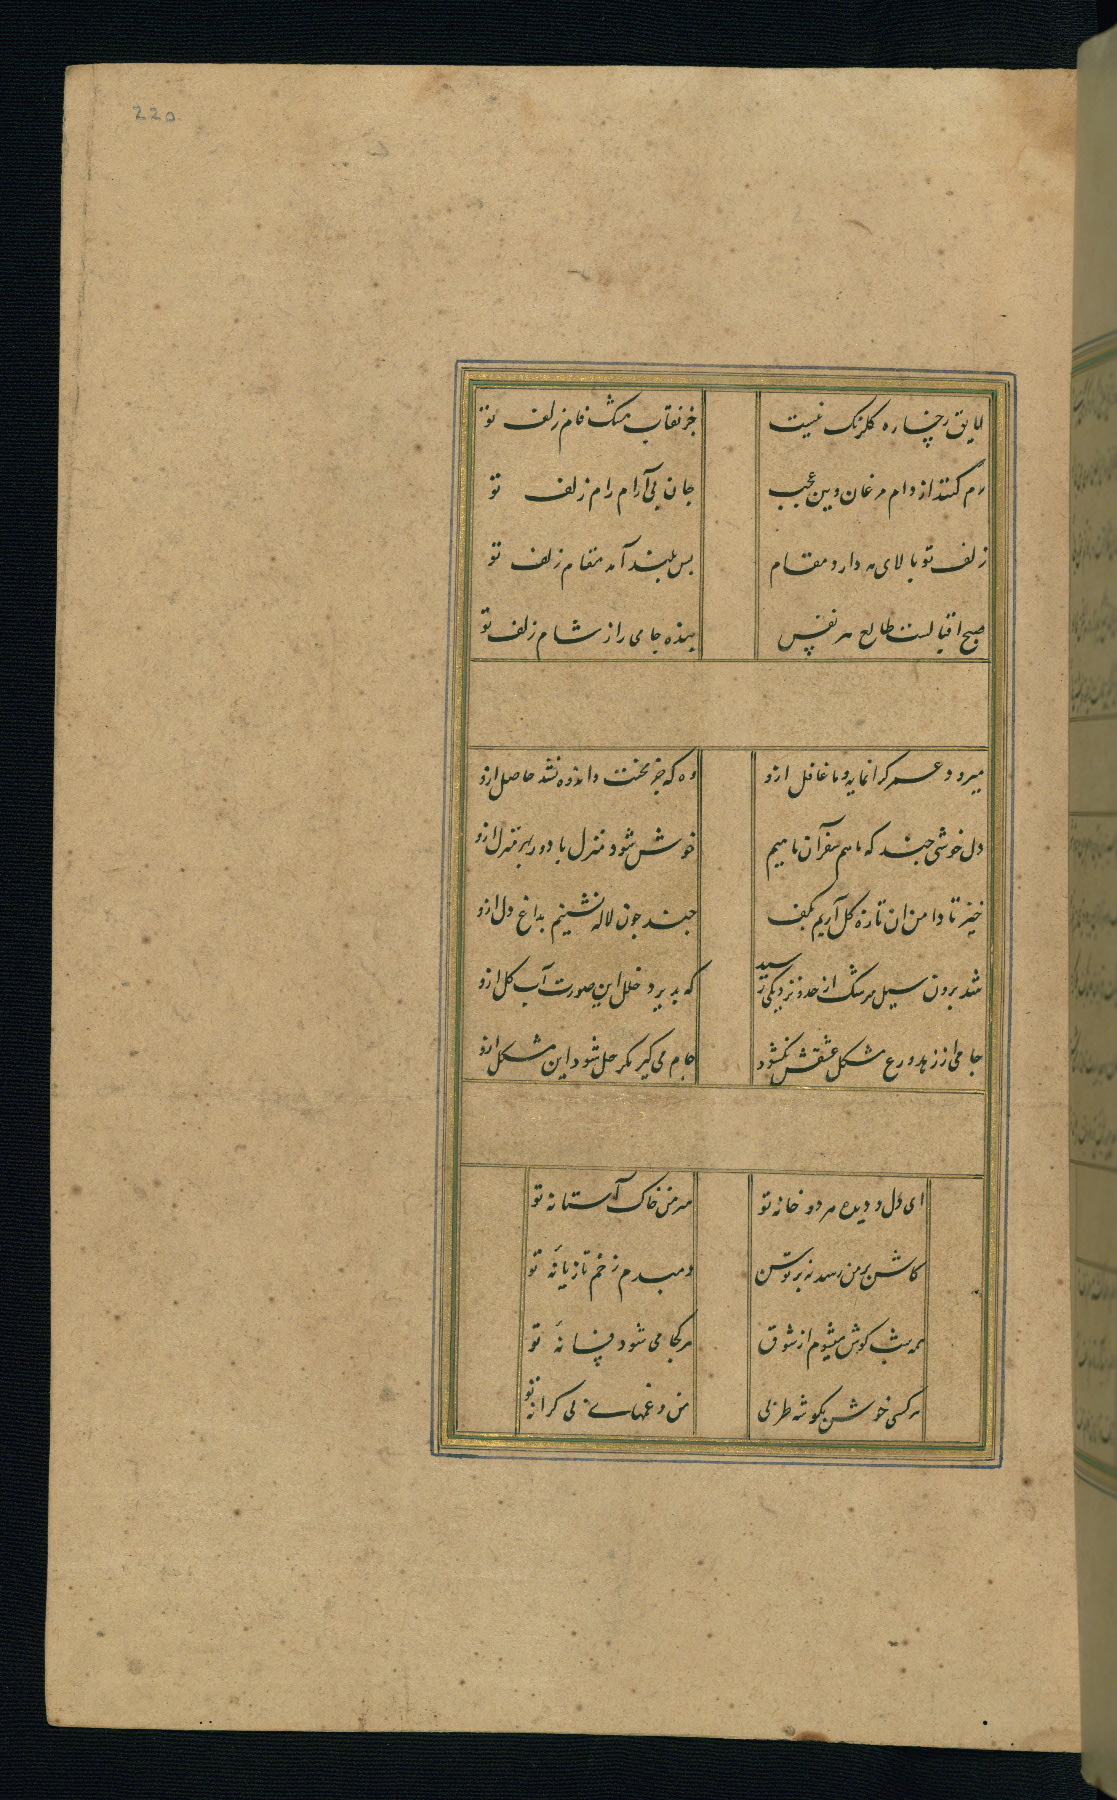 220
لایق رخساره گلرنگ نیست جز نقاب مشک فام زلف تو
رم کنند از دام مرغان وین عجب جان بی آرام رام زلف تو
زلف تو بالای مه دارد مقام بس بلند آمد مقام زلف تو
صبح اقبالست طالع هر نفس بنده جامی را ز شام زلف تو
میرود عمر گرانمایه و ما غافل ازو وه که جز محنت و اندوه نشد حاصل ازو
دل خوشی چند که ما هم سفر آن ماهیم خوش شود منزل ما دور بهر منزل ازو
خیز تا دامن ان تازه گل آریم بکف چند چون لاله نشینیم بداغ دل ازو
شد برون سیل سرشک از حد و نزدیک رسید که پذیرد خلل این صورت آب گل ازو
جامی از زهد و ورع مشکل عشقش نگشود جام می گیر مگر حل شود این مشکل ازو
ای دل و دیده هر دو خانه تو سر من خاک آستانه تو
کاش بر من رسد نه بر توسن دمبدم زخم تازیانه تو
همه شب گوش میشوم از شوق هر کجا می شود فسانه تو
هر کسی خوش بگوشه طربی من و غمهای بی کرانه تو